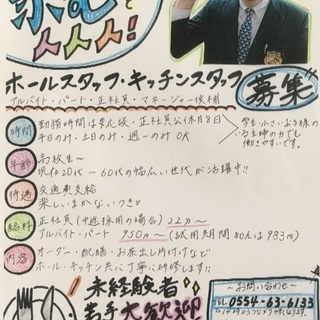 求む!
人人人!
ホールスタッフ・キッチンスタッフ
アルバイト・パート・正社員・マネージャー候補
募集
時間 勤務時間は
正社員公休月8日
平日のみ・土日のみ・週一のみ OK
学生・小さいお子様の
いる主婦の方でも
働きやすいです。
年齢 高校生~
現在20代~60代の幅広い世代が活躍中!!
待遇 交通費支給
楽しいまかないつき
給料 正社員(中途採用の場合)22万~
アルバイト・パート 950円~(試用期間80hは983円)
内容 オーダー・配膳・お茶出し片付けなど
ホール・キッチン共に丁寧に研修します!!
未経験者
若手大歓迎
~お問い合わせ~
TEL 0554-63-6133